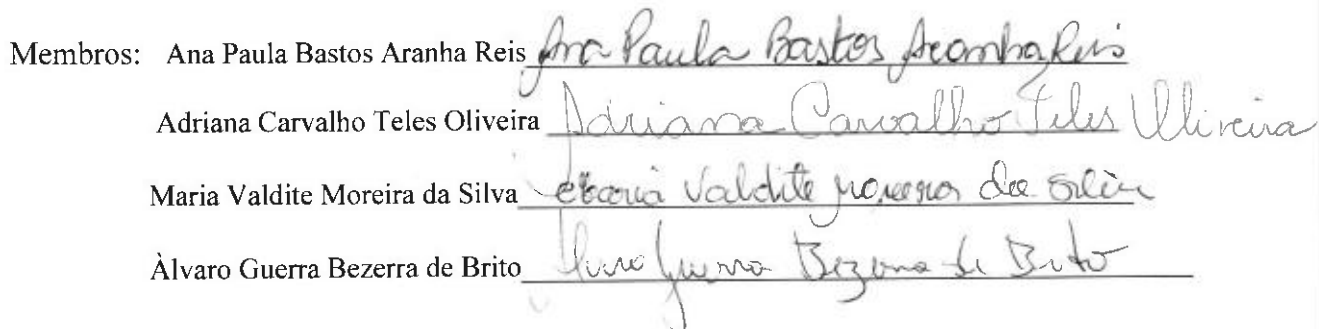 Membros: Ana Paula Bastos Aranha Reis Ana Paula Bastos Aranha Reis
Adriana Carvalho Teles Oliveira Adriana Carvalho Teles Oliveira
Maria Valdite Moreira da Silva Maria Valdite Moreira da Silva
Àlvaro Guerra Bezerra de Brito Alvaro Guerra Bezerra de Brito